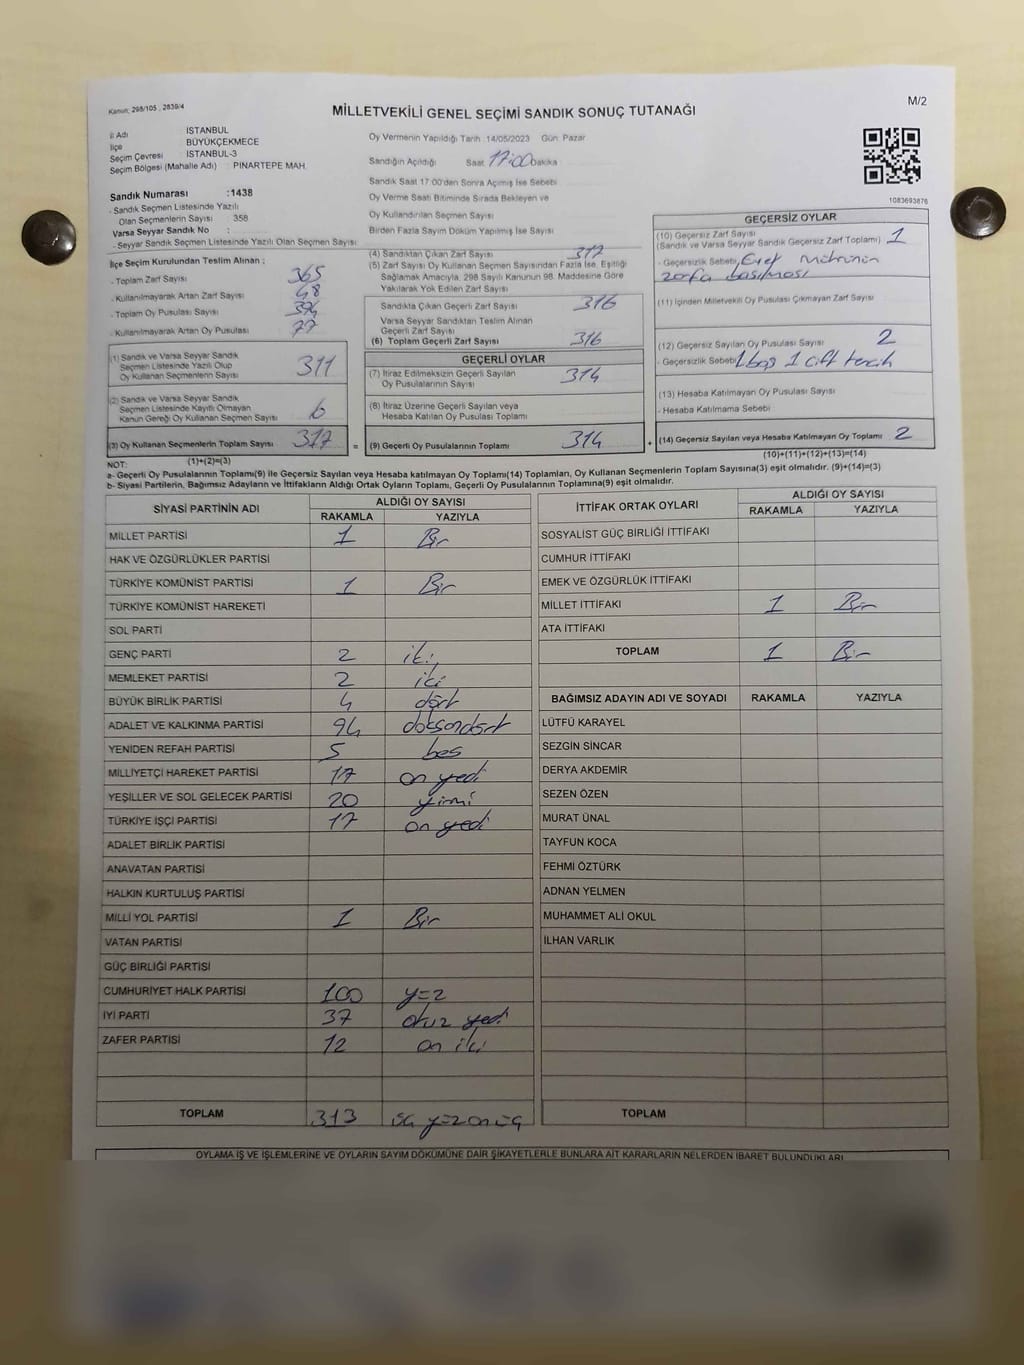 Kanun; 298/105 , 2839/4
MİLLETVEKİLİ GENEL SEÇİMİ SANDIK SONUÇ TUTANAĞI
M/2
İl Adı İSTANBUL
İlçe BÜYÜKÇEKMECE
Seçim Çevresi İSTANBUL-3
Seçim Bölgesi (Mahalle Adı) : PINARTEPE MAH.
Sandık Numarası :1438
- Sandık Seçmen Listesinde Yazılı
Olan Seçmenlerin Sayısı : 358
Varsa Seyyar Sandık No :
- Seyyar Sandık Seçmen Listesinde Yazılı Olan Seçmen Sayısı:
İlçe Seçim Kurulundan Teslim Alınan ;
- Toplam Zarf Sayısı 365
- Kullanılmayarak Artan Zarf Sayısı 48
- Toplam Oy Pusulası Sayısı
- Kullanılmayarak Artan Oy Pusulası 77
(1) Sandık ve Varsa Seyyar Sandık
Seçmen Listesinde Yazılı Olup
Oy Kullanan Seçmenlerin Sayısı 311
(2) Sandık ve Varsa Seyyar Sandık
Seçmen Listesinde Kayıtlı Olmayan
Kanun Gereği Oy Kullanan Seçmen Sayısı 6
(3) Oy Kullanan Seçmenlerin Toplam Sayısı 317
(1)+(2)=(3)
Oy Vermenin Yapıldığı Tarih :14/05/2023 Gün: Pazar
Sandığın Açıldığı Saat 17:00 Dakika
Sandık Saat 17:00'den Sonra Açılmış İse Sebebi
Oy Verme Saati Bitiminde Sırada Bekleyen ve
Oy Kullandırılan Seçmen Sayısı
Birden Fazla Sayım Döküm Yapılmış İse Sayısı
(4) Sandıktan Çıkan Zarf Sayısı 317
(5) Zarf Sayısı Oy Kullanan Seçmen Sayısından Fazla İse, Eşitliği
Sağlamak Amacıyla, 298 Sayılı Kanunun 98. Maddesine Göre
Yakılarak Yok Edilen Zarf Sayısı
Sandıkta Çıkan Geçerli Zarf Sayısı 316
Varsa Seyyar Sandıktan Teslim Alınan
Geçerli Zarf Sayısı
(6) Toplam Geçerli Zarf Sayısı 316
GEÇERLİ OYLAR
(7) İtiraz Edilmeksizin Geçerli Sayılan
Oy Pusulalarının Sayısı 314
(8) İtiraz Üzerine Geçerli Sayılan veya
Hesaba Katılan Oy Pusulası Toplamı
= (9) Geçerli Oy Pusulalarının Toplamı 314
1083693876
GEÇERSİZ OYLAR
(10) Geçersiz Zarf Sayısı
(Sandık ve Varsa Seyyar Sandık Geçersiz Zarf Toplamı) 1
- Geçersizlik Sebebi Evet mührünün
zarfa basılması
(11) İçinden Milletvekili Oy Pusulası Çıkmayan Zarf Sayısı
(12) Geçersiz Sayılan Oy Pusulası Sayısı 2
- Geçersizlik Sebebi 1 boş 1 çift tercih
(13) Hesaba Katılmayan Oy Pusulası Sayısı
- Hesaba Katılmama Sebebi
+ (14) Geçersiz Sayılan veya Hesaba Katılmayan Oy Toplamı 2
(10)+(11)+(12)+(13)=(14)
NOT:
a- Geçerli Oy Pusulalarının Toplamı(9) ile Geçersiz Sayılan veya Hesaba katılmayan Oy Toplamı(14) Toplamları, Oy Kullanan Seçmenlerin Toplam Sayısına(3) eşit olmalıdır. (9)+(14)=(3)
b- Siyasi Partilerin, Bağımsız Adayların ve İttifakların Aldığı Ortak Oyların Toplamı, Geçerli Oy Pusulalarının Toplamına(9) eşit olmalıdır.
SİYASİ PARTİNİN ADI ALDIĞI OY SAYISI
RAKAMLA YAZIYLA
MİLLET PARTİSİ 1 Bir
HAK VE ÖZGÜRLÜKLER PARTİSİ
TÜRKİYE KOMÜNİST PARTİSİ 1 Bir
TÜRKİYE KOMÜNİST HAREKETİ
SOL PARTİ
GENÇ PARTİ 2 iki
MEMLEKET PARTİSİ 2 iki
BÜYÜK BİRLİK PARTİSİ 4 dört
ADALET VE KALKINMA PARTİSİ 94 doksandört
YENİDEN REFAH PARTİSİ 5 beş
MİLLİYETÇİ HAREKET PARTİSİ 17 on yedi
YEŞİLLER VE SOL GELECEK PARTİSİ 20 yirmi
TÜRKİYE İŞÇİ PARTİSİ 17 on yedi
ADALET BİRLİK PARTİSİ
ANAVATAN PARTİSİ
HALKIN KURTULUŞ PARTİSİ
MİLLİ YOL PARTİSİ 1 Bir
VATAN PARTİSİ
GÜÇ BİRLİĞİ PARTİSİ
CUMHURİYET HALK PARTİSİ 100 yüz
İYİ PARTİ 37 otuz yedi
ZAFER PARTİSİ 12 on iki
TOPLAM 313 üç yüz on üç
İTTİFAK ORTAK OYLARI ALDIĞI OY SAYISI
RAKAMLA YAZIYLA
SOSYALİST GÜÇ BİRLİĞİ İTTİFAKI
CUMHUR İTTİFAKI
EMEK VE ÖZGÜRLÜK İTTİFAKI
MİLLET İTTİFAKI 1 Bir
ATA İTTİFAKI
TOPLAM 1 Bir
BAĞIMSIZ ADAYIN ADI VE SOYADI RAKAMLA YAZIYLA
LÜTFÜ KARAYEL
SEZGİN SİNCAR
DERYA AKDEMİR
SEZEN ÖZEN
MURAT ÜNAL
TAYFUN KOCA
FEHMİ ÖZTÜRK
ADNAN YELMEN
MUHAMMET ALİ OKUL
İLHAN VARLIK
TOPLAM
OYLAMA İŞ VE İŞLEMLERİNE VE OYLARIN SAYIM DÖKÜMÜNE DAİR ŞİKAYETLERLE BUNLARA AİT KARARLARIN NELERDEN İBARET BULUNDUKLARI